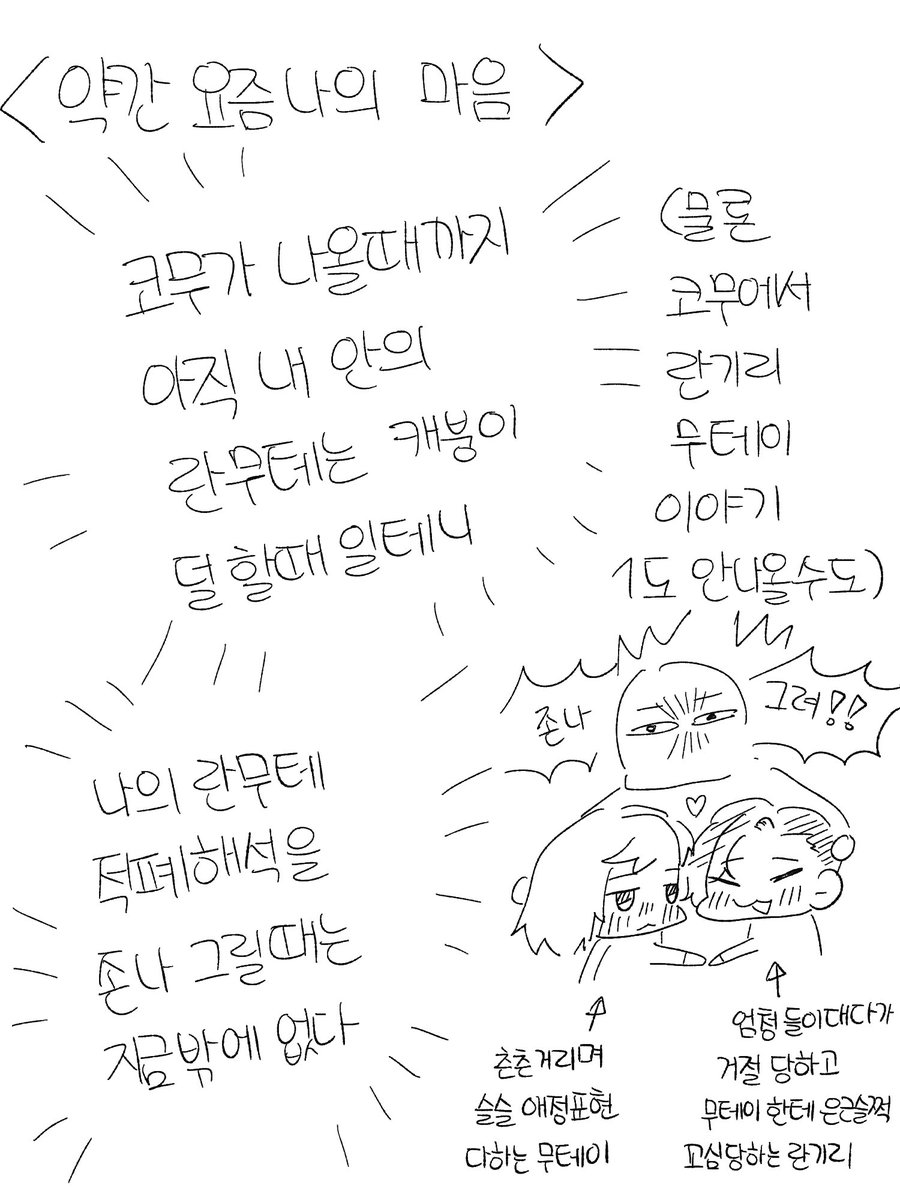 <약간 요즘 나의 마음>
코무가 나올때까지
아직 내 안의
란무테는 캐붕이
덜 할때 일테니
(물론
코무에서
란기리
무테이
이야기
1도 안나올수도)
나의 란무테
적폐해석을
존나 그릴때는
지금밖에 없다
존나
그려!!
촌촌거리며
슬슬 애정표현
다하는 무테이
엄청 들이대다가
거절 당하고
무테이 한테 은근슬쩍
꼬심당하는 란기리